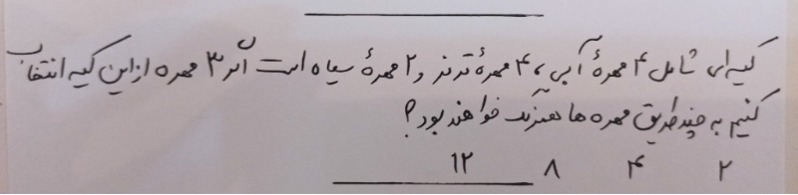 کیسه‌ای شامل ۴ مهرهٔ آبی، ۴ مهرهٔ قرمز و ۲ مهرهٔ سیاه است اگر ۳ مهره از این کیسه انتخاب
کنیم به چند طریق مهره ها همرنگ خواهند بود؟
۲ ۴ ۸ ۱۲